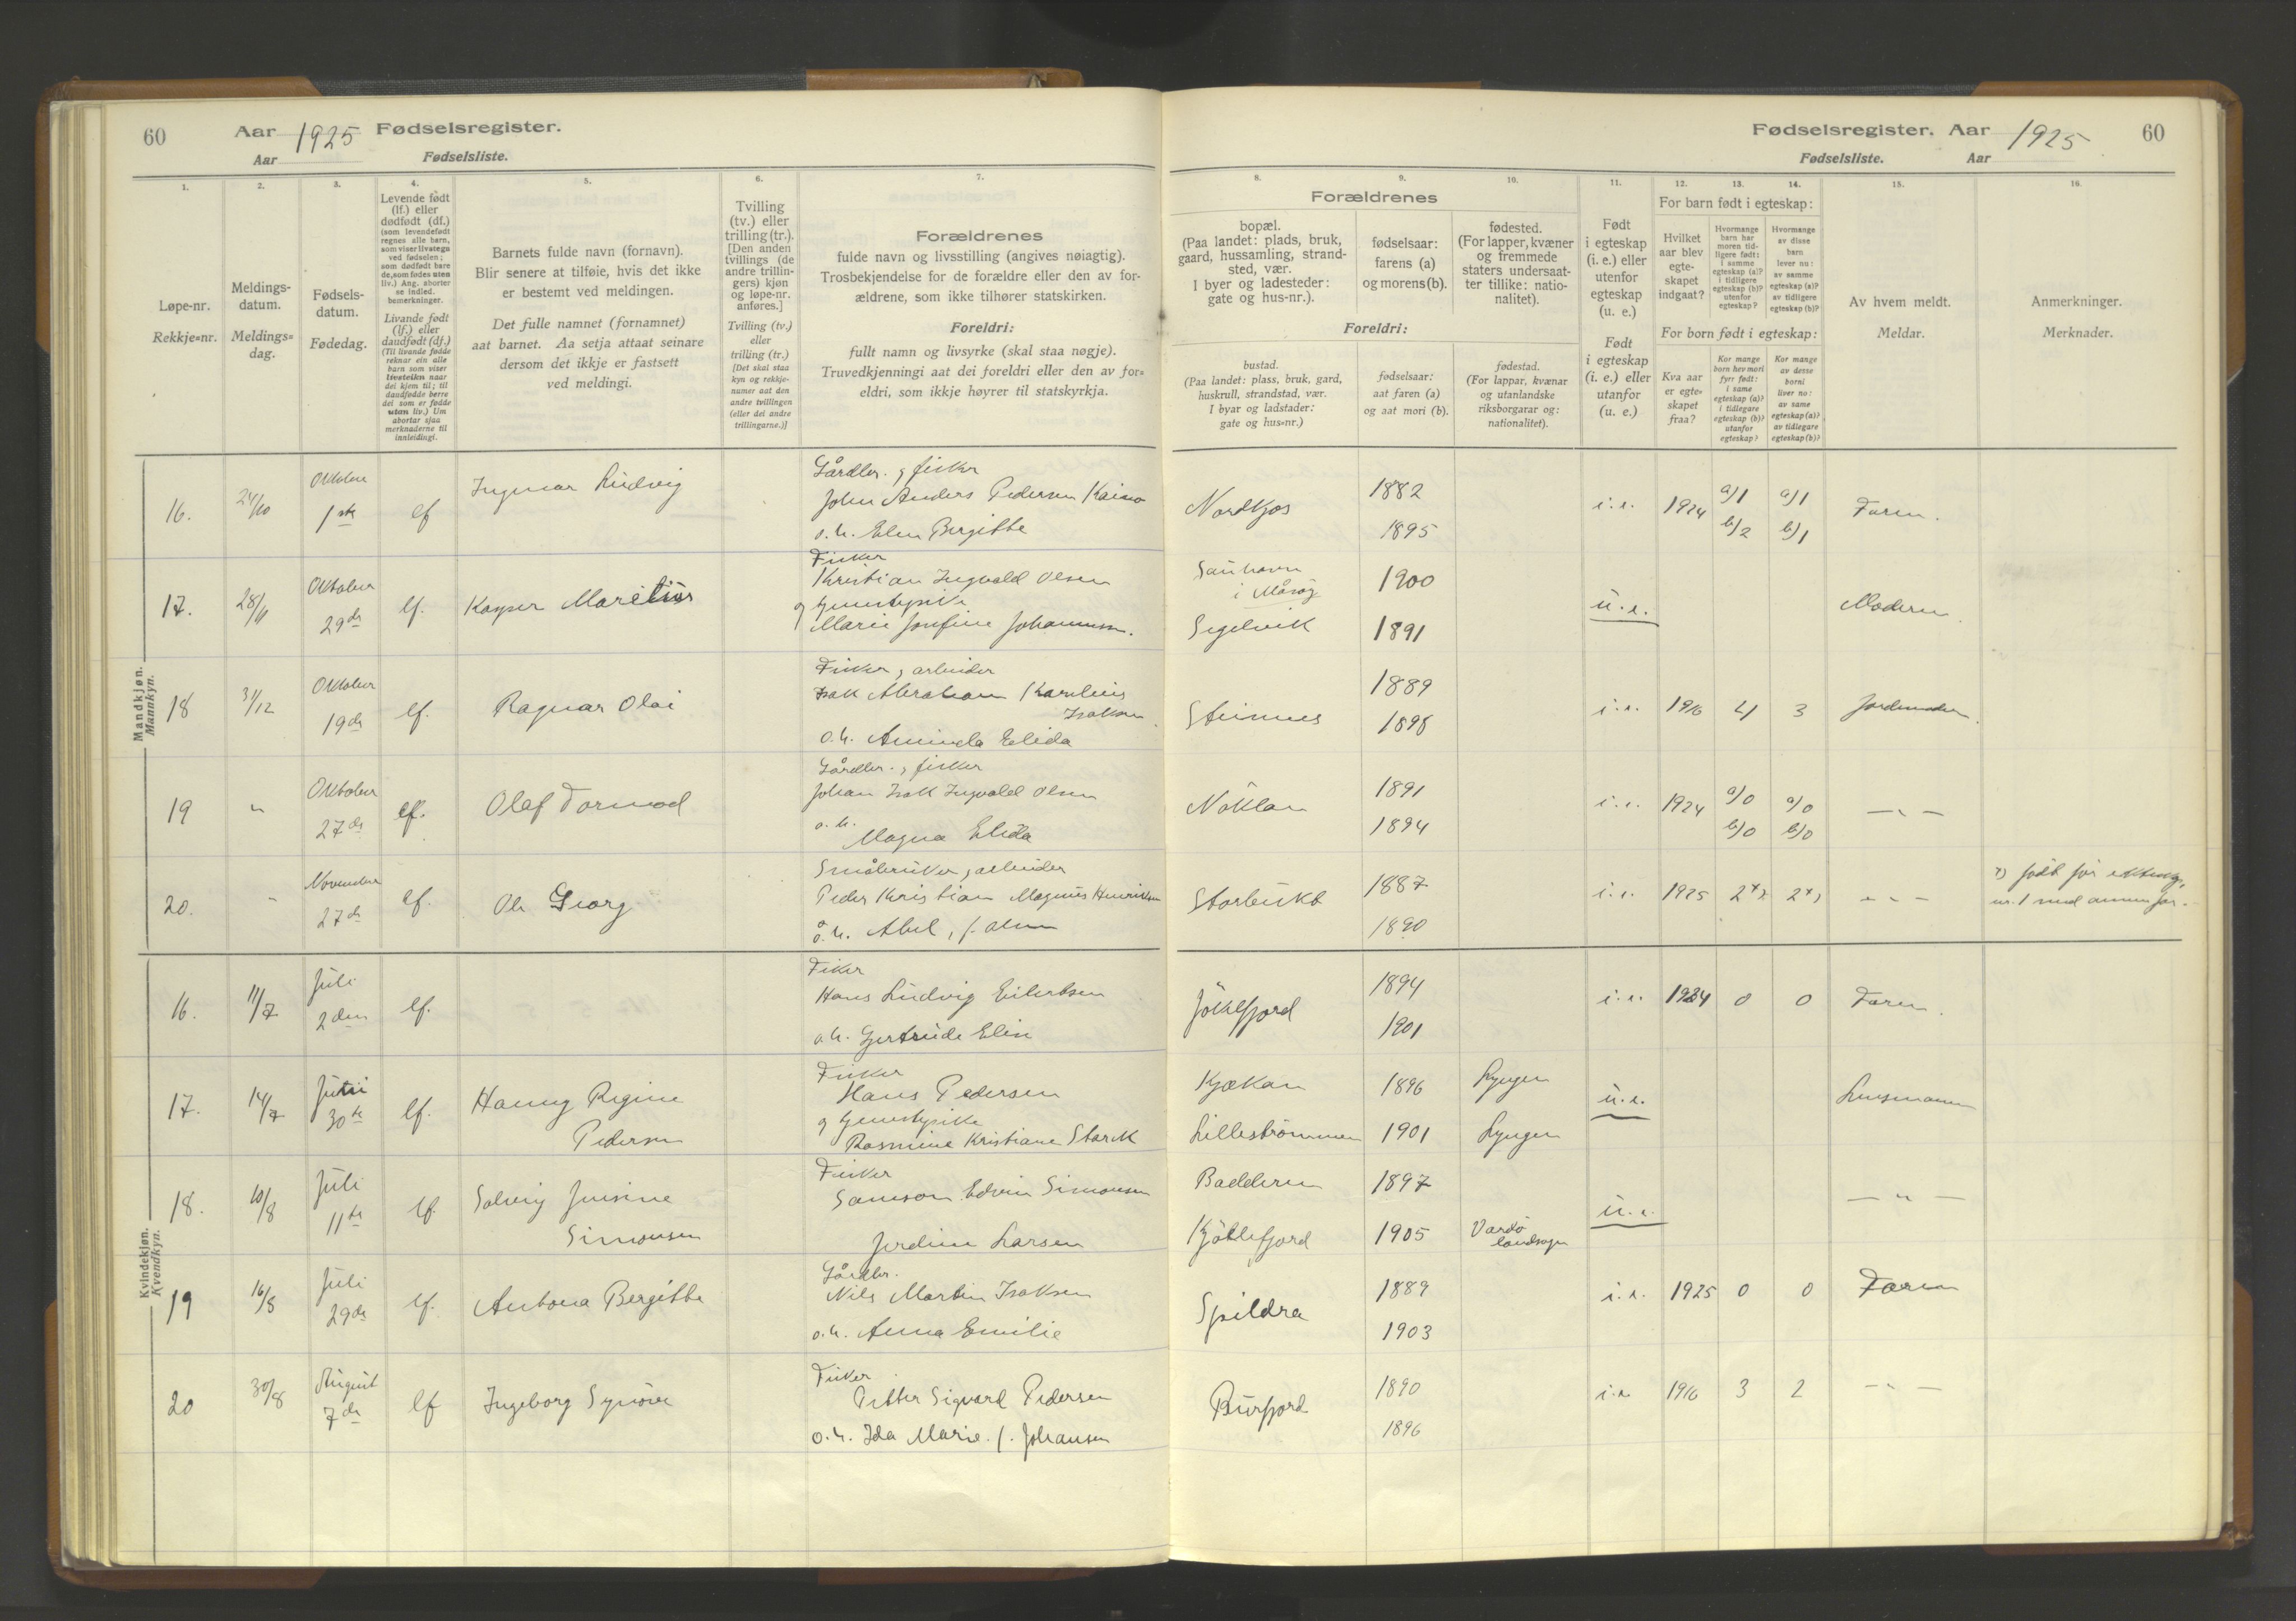 60
Aar 1925 Fødselsregister.
Aar Fødselsliste.
1.
Løpe-nr.
Rekkje=nr.
2.
Meldings-
datum.
Meldings=
dag.
3.
Fødsels-
datum.
Fødedag.
4.
Levende født
(lf.) eller
dødfødt (df.)
(som levendefødt
regnes alle barn,
som viser livstegn
ved fødselen;
som dødfødt bare
de, som fødes uten
liv.) Ang. aborter
se indled.
bemerkninger.
Livande født
(lf.) eller
daudfødt (df.)
(Til livande fødde
reknar ein alle
barn som viser
livsteikn naar
dei kjem til; til
daudfødde berre
dei som er fødde
utan liv.) Um
abortar sjaa
merknaderne til
innleidingi.
5.
Barnets fulde navn (fornavn).
Blir senere at tilføie, hvis det ikke
er bestemt ved meldingen.
Det fulle namnet (fornamnet)
aat barnet. Aa setja attaat seinare
dersom det ikkje er fastsett
ved meldingi.
6.
Tvilling
(tv.) eller
trilling (tr.).
[Den anden
tvillings (de
andre trillin-
gers) kjøn
og løpe-nr.
anføres.]
Tvilling (tv.)
eller
trilling (tr.)
[Det skal staa
kyn og rekkje-
numer aat den
andre tvillingen
(eller dei andre
trillingarne.)]
7.
Forældrenes
fulde navn og livsstilling (angives nøiagtig).
Trosbekjendelse for de forældre eller den av for-
ældrene, som ikke tilhører statskirken.
Foreldri:
fullt namn og livsyrke (skal staa nøgje).
Truvedkjenningi aat dei foreldri eller den av for=
eldri, som ikkje høyrer til statskyrkja.
Mandkjøn.
Mannkyn.
16. 24/10 Oktober 1ste lf Ingmar Ludvig
Gårdbr. , fisker
John Anders Pedersen Kaino
o. h. Elen Bergitte
17. 28/11 Oktober 29de lf. Kasper Maretius
Fisker
Kristian Ingvald Olsen
og tjenestepike
Marie Josefine Johannesen.
18 31/12 Oktober 19de lf. Ragnar Olai
Fisker, arbeider
Isak Abraham Karelius
Isaksen
o.h. Aminda Elida
19 " Oktober 27de lf. Olaf Tormod
Gårdbr. , fisker
Johan Isak Ingvald Olsen
o. h.
Magna Elida
20. " November 27de lf. Ole Georg
Småbruker, arbeider
Peder Kristian Magnus Henriksen
o. h. Abel, f. Olsen
Kvindekjøn.
Kvendkyn.
16. 11/7 Juli 2den lf.
Fisker
Hans Ludvig Eilertsen
o.h. Gjertrude Elin
17. 14/7 Juni 30te lf. Hanny Regine
Pedersen
Fisker
Hans Pedersen
og tjenestepike
Rasmine Kristiane Starck
18. 10/8 Juli 11te lf. Solveig Jensine
Simonsen
Fisker
Samson Edvin Simonsen
Jordine Larsen
19 16/8 Juli 29de lf. Antona Bergitte
Gårdbr.
Nils Martin Isaksen
o.h. Anna Emilie
20 30/8 August 7de lf Ingeborg Synøve
Fisker
Petter Sigvard Pedersen
o.h. Ida Marie. f. Johansen
Fødselsregister. Aar 1925 60
Fødselsliste. Aar
8.
Forældrenes
bopæl.
(Paa landet: plads, bruk,
gaard, hussamling, strand-
sted, vær.
I byer og ladesteder:
gate og hus-nr.).
Foreldri:
bustad.
(Paa landet: plass, bruk, gard,
huskrull, strandstad, vær.
I byar og ladstader:
gate og hus=nr.)
9.
fødselsaar:
farens (a)
og morens (b).
fødselsaar:
aat faren (a)
og aat mori (b).
10.
fødested.
(For lapper, kvæner
og fremmede
staters undersaat-
ter tillike: natio-
nalitet).
fødestad.
(For lappar, kvænar
og utanlandske
riksborgarar og:
nationalitet).
11.
Født
i egteskap
(i. e.) eller
utenfor
egteskap
(u. e.)
Født
i egteskap
(i. e.) eller
utanfor
(u. e.)
12.
For barn født i egteskap:
Hvilket
aar blev
egte-
skapet
indgaat?
For born født i egteskap:
Kva aar
er egte-
skapet
fraa?
13.
Hvormange
barn har
moren tid-
ligere født:
i samme
egteskap (a)?
i tidligere
egteskap (b)?
utenfor
egteskap?
Kor mange
born hev mori
fyrr født:
i same
egteskap (a)?
i tidlegare
egteskap (b)?
utanfor
egteskap?
14.
Hvormange
av disse
barn
lever nu:
av samme
egteskap (a)?
av tidligere
egteskap (b)?
Kor mange
av desse
borni
liver no:
av same
egteskap (a)?
av tidlegare
egteskap (b)?
15.
Av hvem meldt.
Meldar.
16.
Anmerkninger.
Merknader.
Nordkjos 1882 i. e. 1924 a)1 a)1 Faren.
1895 b)2 b)1
Sanhavn
i Måsøy 1900 u. e. Moderen.
Segelvik 1891
Steinnes 1889 i. e. 1916 4 3 Jordmoder.
1898
Nöklan 1891 i. e. 1924 a)0 a)0 — " —
1894 b)0 b)0
Storbukt 1887 i. e. 1925 2x) 2x) — " —
1890
x) født før ektesk.,
nr. 1 med annen far.
Jökelfjord 1894 i. e. 1924 0 0 Faren.
1901
Kjækan 1896 Lyngen u. e. Lensmannen
Lilleströmmen 1901 Lyngen
Badderen 1897 u. e. — " —
Kjöllefjord 1905 Vardö
landsogn
Spildra 1889 i. e. 1925 0 0 Faren
1903
Burfjord 1890 i. e 1916 3 2 — " —
1896